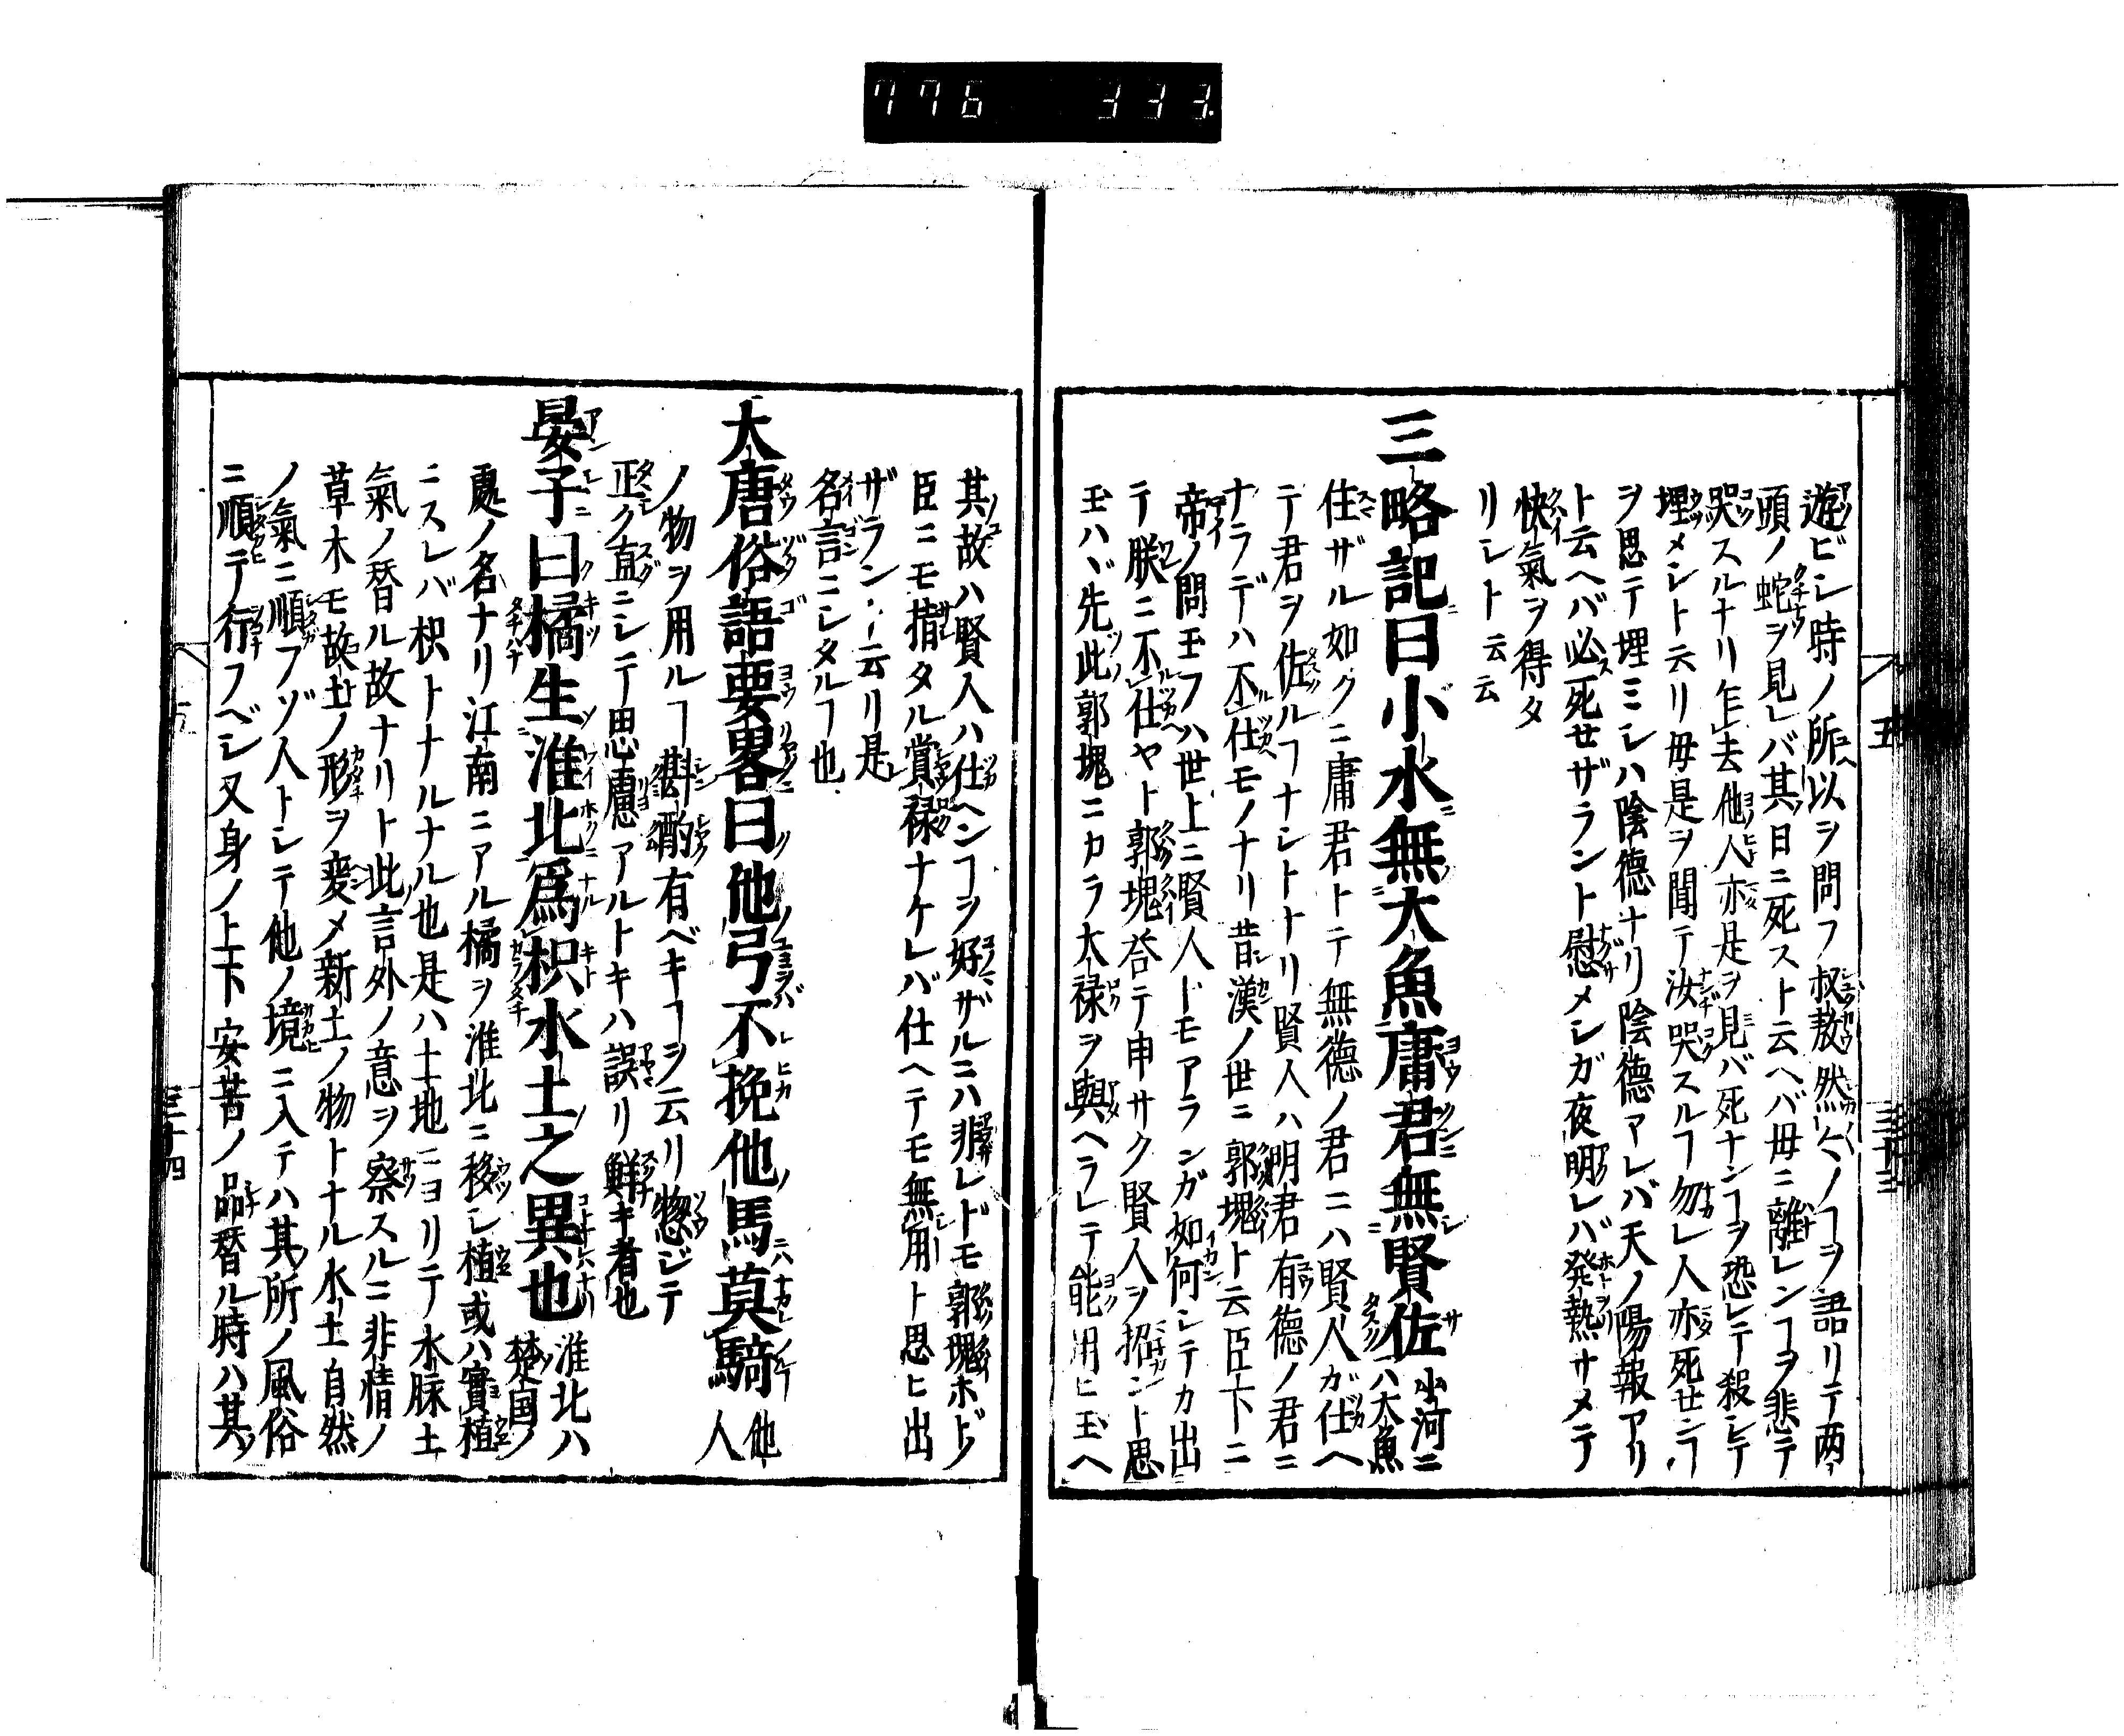 776 333
五
三十三
遊ビシ時ノ所以ヲ問フ叔敖然〱ノヿヲ語リテ両
頭ノ蛇ヲ見レバ其日ニ死スト云ヘバ母ニ離レンヿヲ悲テ
哭スルナリ乍去他人亦是ヲ見バ死ナンヿヲ恐レテ殺シテ
埋メシト云リ母是ヲ聞テ汝哭スルヿ勿レ人亦死センヿ
ヲ思テ埋ミシハ陰德ナリ陰德アレバ天ノ陽報アリ
ト云ヘバ必死セザラント慰メシガ夜明レバ発熱サメテ
快氣ヲ得タ
リシト云云
三略記曰小水無大魚庸君無賢佐 小河ニハ大魚
住ザル如クニ庸君トテ無德ノ君ニハ賢人ガ仕ヘ
テ君ヲ佐ルヿナシトナリ賢人ハ明君有德ノ君ニ
ナラデハ不仕モノナリ昔漢ノ世ニ郭塊ト云臣下ニ
帝ノ問玉フハ世上ニ賢人ドモアランガ如何シテカ出
テ朕ニ不仕ヤト郭塊荅テ申サク賢人ヲ招ント思
玉ハヾ先此郭塊ニカラ大禄ヲ與ヘラレテ能用ヒ玉ヘ
其故ハ賢人ハ仕ヘンヿヲ好ザルニハ非レドモ郭塊ホドノ
臣ニモ指タル賞禄ナケレバ仕ヘテモ無用ト思ヒ出
ザラン云リ是
名言ニシタルヿ也
大唐俗語要畧曰他弓不挽他馬莫騎 他人
ノ物ヲ用ルヿ斟酌有ベキヿヲ云リ惣ジテ
正ク直ニシテ思慮アルトキハ誤リ鮮キ者也
晏子曰橘生淮北爲枳水土之異也 淮北ハ楚国ノ
處ノ名ナリ江南ニアル橘ヲ淮北ニ移シ植或ハ實植
ニスレバ枳トナルナル也是ハ土地ニヨリテ水脉土
氣ノ替ル故ナリト此言外ノ意ヲ察スルニ非情ノ
草木モ故土ノ形ヲ変メ新土ノ物トナル水土自然
ノ氣ニ順フゾ人トシテ他ノ境ニ入テハ其所ノ風俗
ニ順テ行フベシ又身ノ上下安苦ノ品替ル時ハ其
三十四